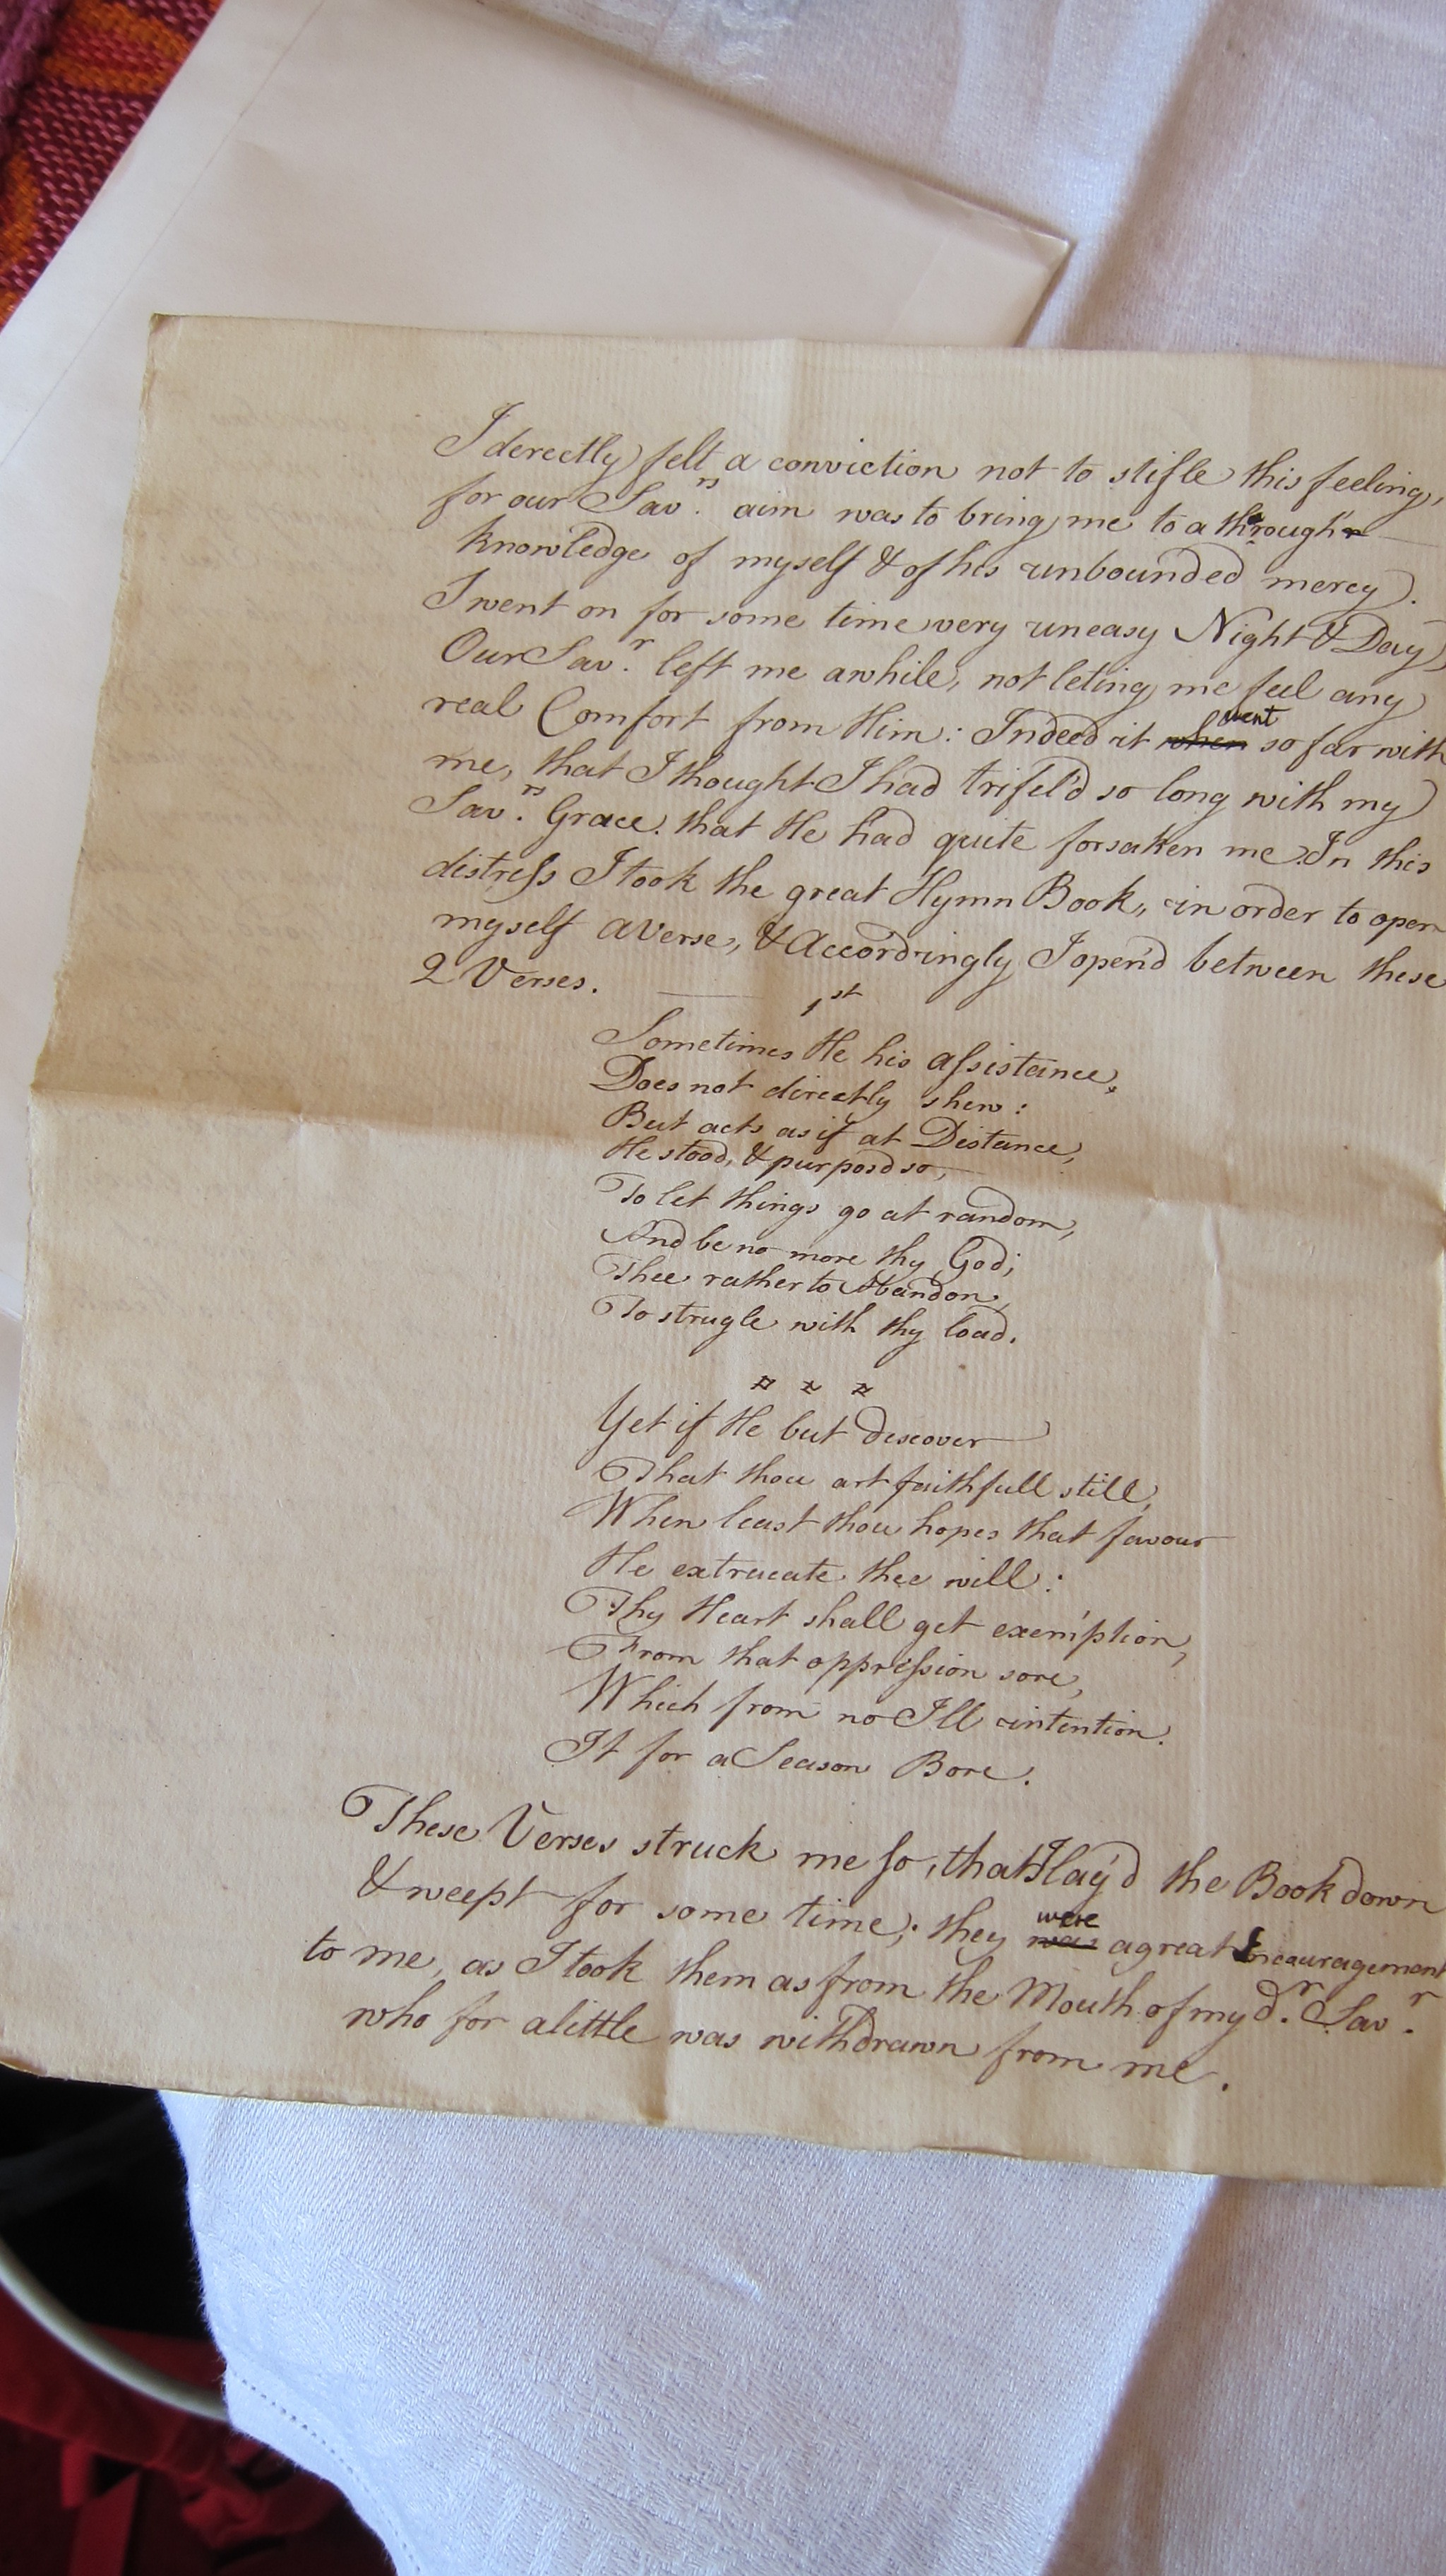 I derectly felt a conviction not to stifle this feeling,
for our Sav.rs aim was to bring me to a thorough
knowledge of myself & of his unbounded mercy.
I went on for some time very uneasy Night & Day,
Our Sav.r left me awhile, not leting me feel any
real Comfort from Him: Indeed it when went so far with
me, that I thought I had trifel'd so long with my
Sav.rs Grace. that He had quite forsaken me. In this
distress I took the great Hymn Book, in order to open
myself a Verse, & Accordingly I open'd between these
2 Verses.
1st
Sometimes He his assistance,
Does not directly shew:
But acts as if at Distance,
He stood, & purposd so,
To let things go at random,
And be no more thy God;
Thee rather to Abandon,
To strugle with thy load.
Yet if He but discover
That thou art faithfull still,
When least thou hopes that favour
He extracate thee will:
Thy Heart shall get exemption,
From that oppression sore,
Which from no Ill intention.
It for a Season Bore.
These Verses struck me so, that I lay'd the Book down
& weept for some time; they was were a great Encouragement
to me, as I took them as from the Mouth of my d.r Sav.r
who for a little was withdrawn from me.